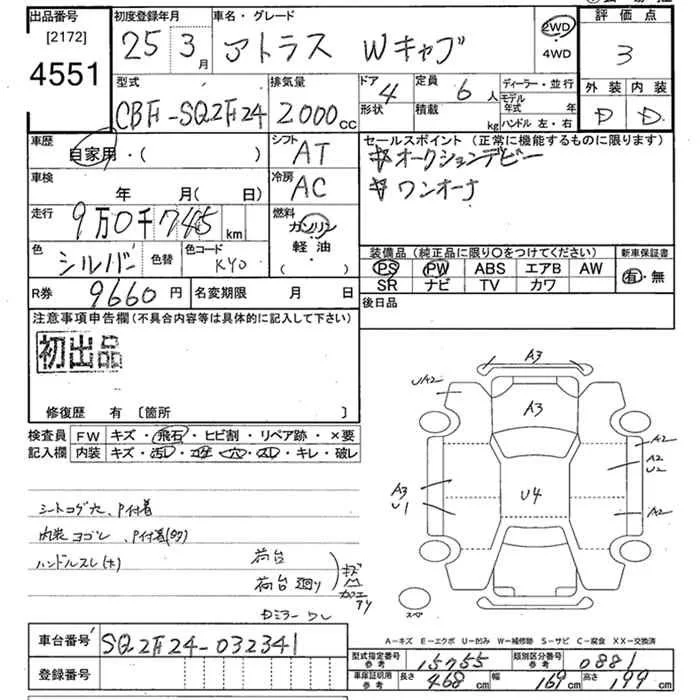 出品番号 初度登録年月 車名・グレード 評価点
[2172] 25年 3月 アトラス Wキャブ 2WD・4WD 3
4551
型式 排気量 ドア 4 定員 6人 ディーラー・並行 外装 内装
CBF-SQ2F24 2000cc 形状 積載 kg モデル年式 年 D D
ハンドル 左・右
車歴 自家用・( ) シフト AT セールスポイント (正常に機能するものに限ります)
☆オークションデビー
車検 年 月(日) 冷房 AC ☆ワンオーナ
走行 9万0千745km 燃料 ガソリン・軽油・( )
色 シルバー 色替 色コード KY0
装備品 (純正品に限り○をつけてください) 新車保証書
PS PW ABS エアB AW 有・無
SR ナビ TV カワ
R券 9660円 名変期限 月 日 後日品
注意事項申告欄(不具合内容等は具体的に記入して下さい)
初出品
修復歴 有 [箇所 ]
検査員記入欄 FW キズ・飛石・ヒビ割・リペア跡・×要
内装 キズ・汚レ・コゲ・穴・スレ・キレ・破レ
シートコゲ穴、P付着
内装ヨゴレ、P付着(ワク)
ハンドルスレ(大)
荷台
荷台廻り
キズ
加工
A3
UA2
A3
A2
A2
U2
A3
U1
U4
A2
スペア
A-キズ E-エクボ U-凹み W-補修跡 S-サビ C-腐食 XX-交換済
車台番号 SQ2F24-032341
型式指定番号 参考 15755 類別区分番号 参考 0881
登録番号
車庫証明用 参考 長さ 468cm 幅 169cm 高さ 199cm